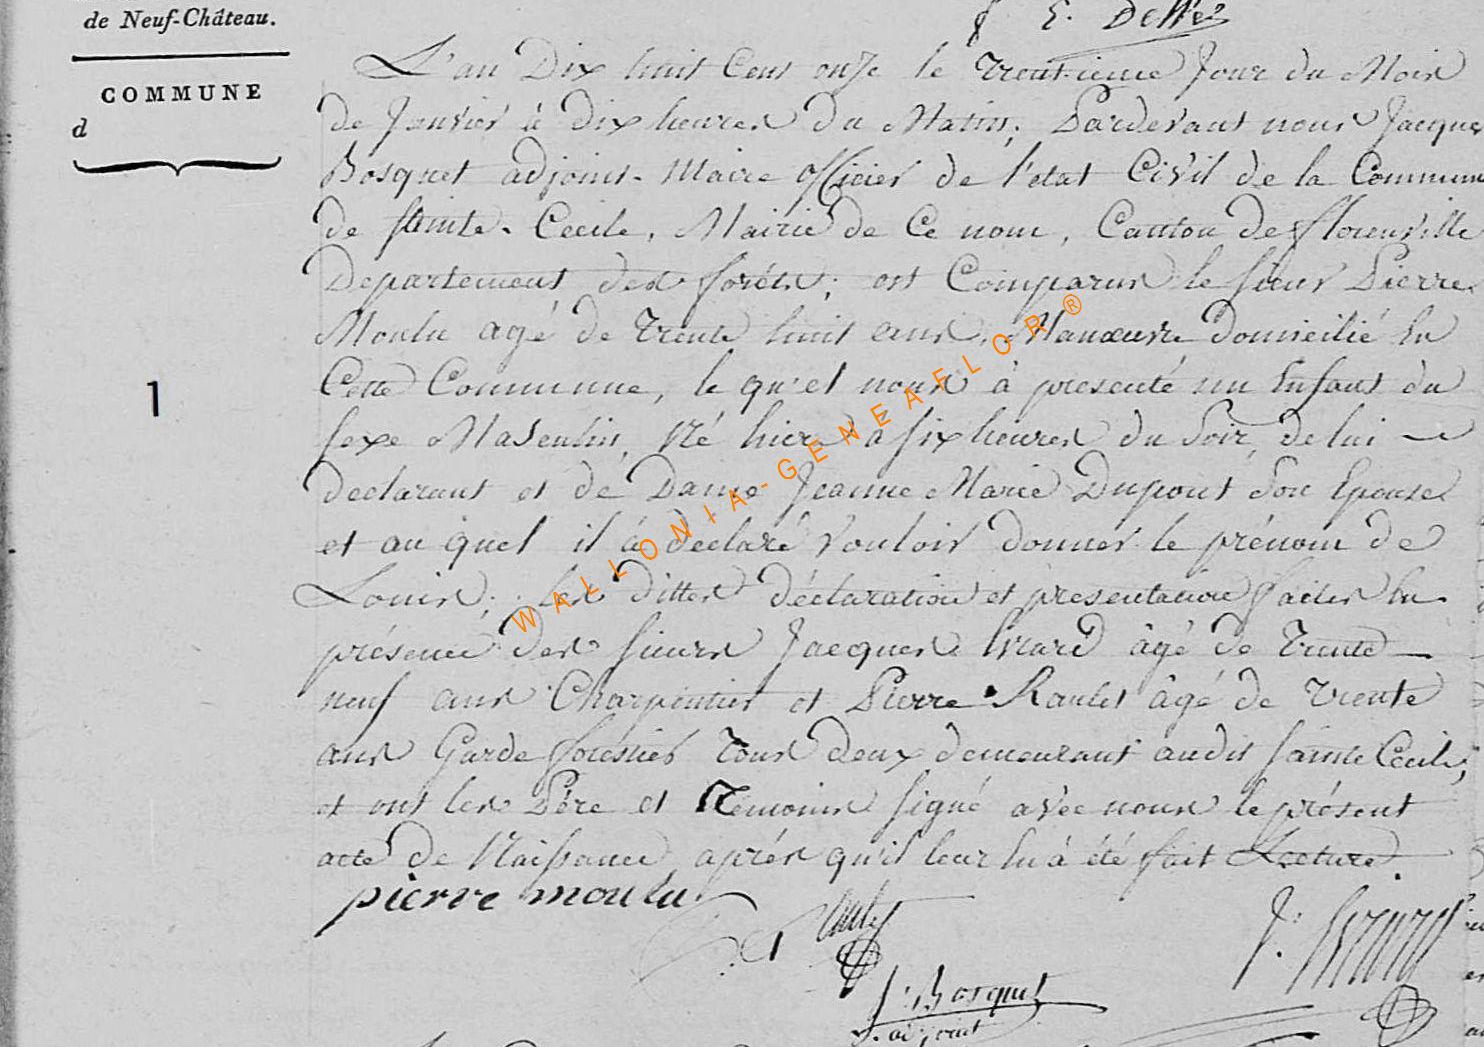 de Neuf-Château.
COMMUNE
d
1
L'an Dix huit Cent onze le trentieme Jour du Mois
de Janvier à dix heures du Matin, Pardevant nous Jacque
Bosquet adjoint-Maire officier de l'etat Civil de la Commune
de Sainte-Cecile, Mairie de Ce nom, Canton de florenville
Departement des forêts; est Comparus le sieur Pierre
Moulu agé de trente huit ans, Manœuvre domicilié En
Cette Commune, le quel nous à presenté un Enfant du
sexe Masculin, Né hier à six heures du Soir, de lui
declarant et de Dame Jeanne Marie Dupont Son Epouse
et au quel il à déclaré Vouloir donner le prénom de
Louis; les dittes déclaration et présentation faites En
présence des sieurs Jacques Evrard âgé de trente
neuf ans Charpentier et Pierre Raulet âgé de trente
ans Garde forestier tous deux demeurant audit Sainte Cecile,
et ont les Père et Témoins signé avec nous le présent
acte de Naissance, après qu'il leur En à été fait Lecture.
pierre moulu
J: Bosquet
adjoint
WALLONIA-GENEAFLOR®